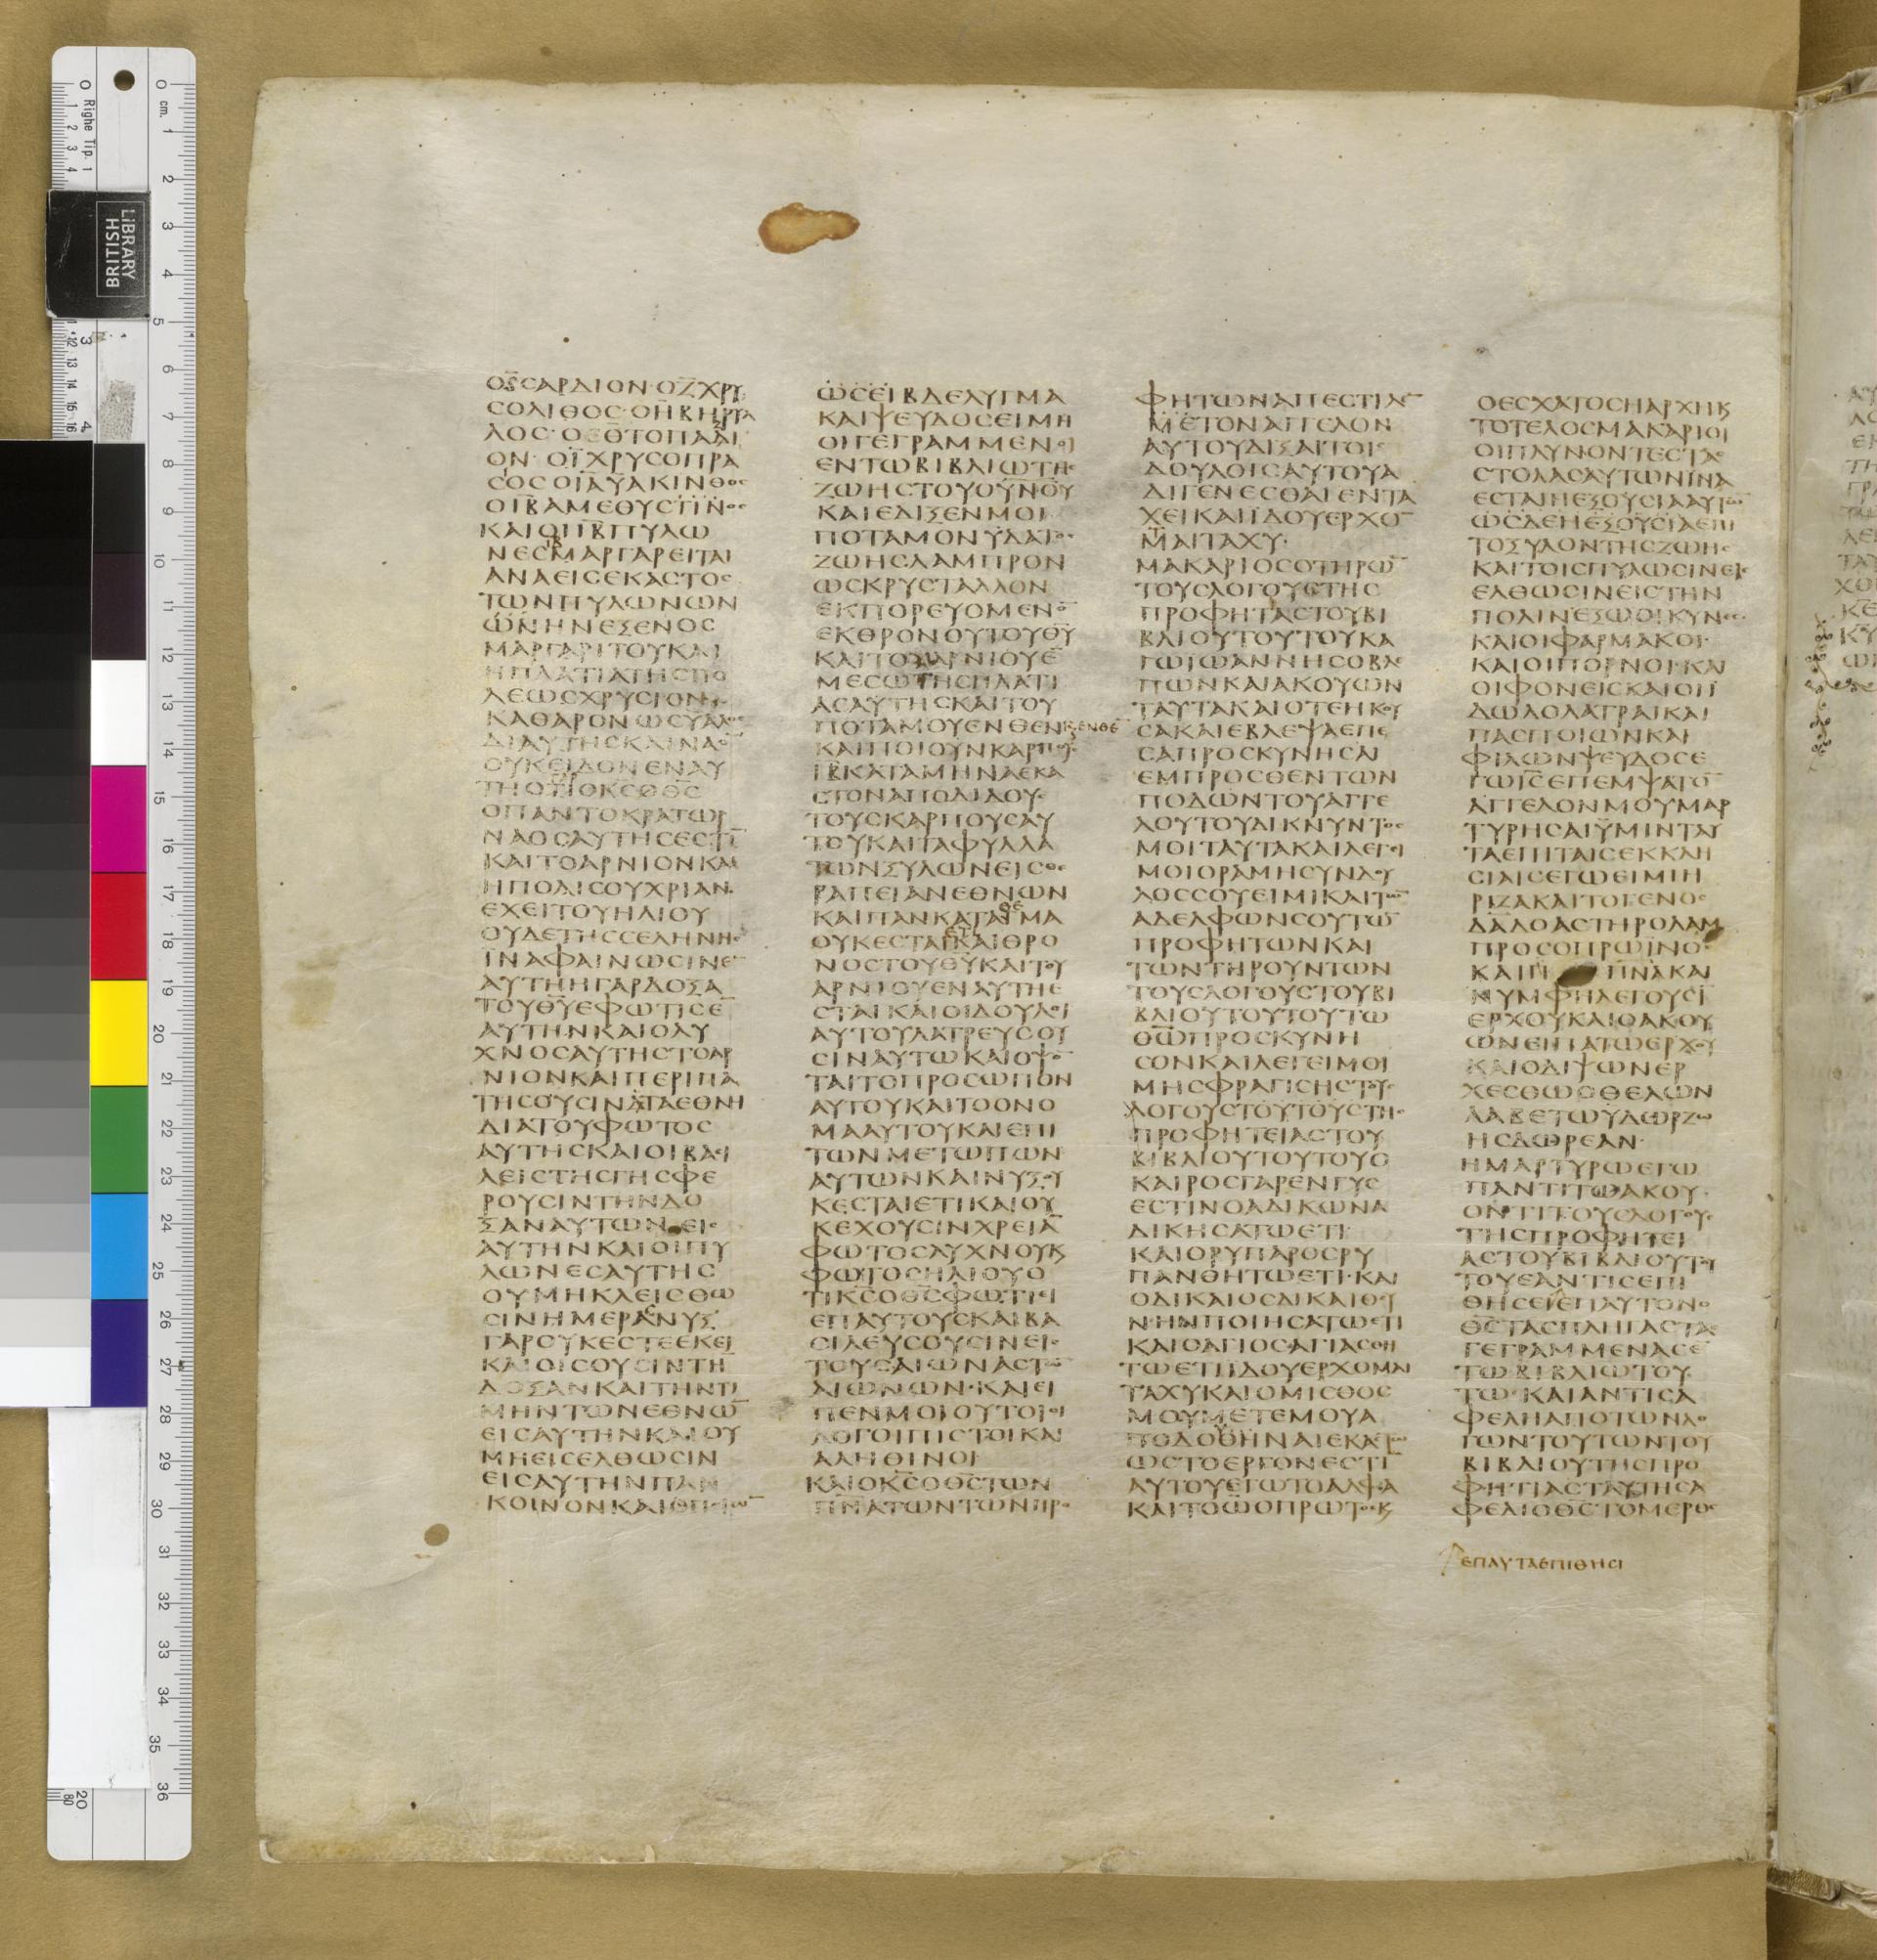 ΟϚ̅ΣΑΡΔΙΟΝ·ΟΖ̅ΧΡΥ
ΣΟΛΙΘΟΣ·ΟΗ̅ΒΗΡΥΛ
ΛΟΣ·ΟΘ̅ΤΟΠΑΔΙ
ΟΝ·ΟΙ̅ΧΡΥΣΟΠΡΑ
ΣΟΣΟΙΑ̅ΥΑΚΙΝΘΟΣ
ΟΙΒ̅ΑΜΕΘΥΣΤΙΝΟΣ
ΚΑΙΟΙΙΒ̅ΠΥΛΩ
ΝΕΣΙΒ̅ΜΑΡΓΑΡΕΙΤΑΙ
ΑΝΑΕΙΣΕΚΑΣΤΟΣ
ΤΩΝΠΥΛΩΝΩΝ
ΩΝΗΝΕΞΕΝΟΣ
ΜΑΡΓΑΡΙΤΟΥΚΑΙ
ΗΠΛΑΤΙΑΤΗΣΠΟ
ΛΕΩΣΧΡΥΣΙΟΝ
ΚΑΘΑΡΟΝΩΣΥΑΛΟΣ
ΔΙΑΥΓΗΣΚΑΙΝΑΟ̅
ΟΥΚΕΙΔΟΝΕΝΑΥ
ΤΗΟΤΙΟΚ̅Σ̅ΟΘ̅Σ̅
ΟΠΑΝΤΟΚΡΑΤΩΡ
ΝΑΟΣΑΥΤΗΣΕΣΤΙ̅
ΚΑΙΤΟΑΡΝΙΟΝΚΑΙ
ΗΠΟΛΙΣΟΥΧΡΙΑΝ
ΕΧΕΙΤΟΥΗΛΙΟΥ
ΟΥΔΕΤΗΣΣΕΛΗΝΗΣ
ΙΝΑΦΑΙΝΩΣΙΝΕ̅
ΑΥΤΗΗΓΑΡΔΟΞΑ
ΤΟΥΘ̅Υ̅ΕΦΩΤΙΣΕ̅
ΑΥΤΗΝΚΑΙΟΛΥ
ΧΝΟΣΑΥΤΗΣΤΟΑΡ
ΝΙΟΝΚΑΙΠΕΡΙΠΑ
ΤΗΣΟΥΣΙΝΤΑΕΘΝΗ
ΔΙΑΤΟΥΦΩΤΟΣ
ΑΥΤΗΣΚΑΙΟΙΒΑΣΙ
ΛΕΙΣΤΗΣΓΗΣΦΕ
ΡΟΥΣΙΝΤΗΝΔΟ
ΞΑΝΑΥΤΩΝΕΙΣ
ΑΥΤΗΝΚΑΙΟΙΠΥ
ΛΩΝΕΣΑΥΤΗΣ
ΟΥΜΗΚΛΕΙΣΘΩ
ΣΙΝΗΜΕΡΑΣΝΥΞ
ΓΑΡΟΥΚΕΣΤΕΕΚΕΙ
ΚΑΙΟΙΣΟΥΣΙΝΤΗ
ΔΟΞΑΝΚΑΙΤΗΝΤΙ
ΜΗΝΤΩΝΕΘΝΩ̅
ΕΙΣΑΥΤΗΝΚΑΙΟΥ
ΜΗΕΙΣΕΛΘΩΣΙΝ
ΕΙΣΑΥΤΗΝΠΑΝ
ΚΟΙΝΟΝΚΑΙΟΠΟΙΩ̅
ΩΣΕΙΒΔΕΛΥΓΜΑ
ΚΑΙΨΕΥΔΟΣΕΙΜΗ
ΟΙΓΕΓΡΑΜΜΕΝΟΙ
ΕΝΤΩΒΙΒΛΙΩΤΗΣ
ΖΩΗΣΤΟΥΟΥ̅Ν̅Ο̅Υ̅
ΚΑΙΕΔΙΞΕΝΜΟΙ
ΠΟΤΑΜΟΝΥΔΑΤΟΣ
ΖΩΗΣΛΑΜΠΡΟΝ
ΩΣΚΡΥΣΤΑΛΛΟΝ
ΕΚΠΟΡΕΥΟΜΕΝΟ̅
ΕΚΘΡΟΝΟΥΤΟΥΘ̅Υ̅
ΚΑΙΤΟΥΑΡΝΙΟΥΕ̅
ΜΕΣΩΤΗΣΠΛΑΤΙ
ΑΣΑΥΤΗΣΚΑΙΤΟΥ
ΠΟΤΑΜΟΥΕΝΘΕΝ ΚΕΝΘΕ̅
ΚΑΙΠΟΙΟΥΝΚΑΡΠΟΥΣ
ΙΒ̅ΚΑΤΑΜΗΝΑΕΚΑ
ΣΤΟΝΑΠΟΔΙΔΟΥΣ
ΤΟΥΣΚΑΡΠΟΥΣΑΥ
ΤΟΥΚΑΙΤΑΦΥΛΛΑ
ΤΩΝΞΥΛΩΝΕΙΣΘΕ
ΡΑΠΕΙΑΝΕΘΝΩΝ
ΚΑΙΠΑΝΚΑΤΑΘΕΜΑ
ΟΥΚΕΣΤΑΙΕΤΙΚΑΙΘΡΟ
ΝΟΣΤΟΥΘ̅Υ̅ΚΑΙΤΟΥ
ΑΡΝΙΟΥΕΝΑΥΤΗΕ
ΣΤΑΙΚΑΙΟΙΔΟΥΛΟΙ
ΑΥΤΟΥΛΑΤΡΕΥΣΟΥ
ΣΙΝΑΥΤΩΚΑΙΟΨΟ̅
ΤΑΙΤΟΠΡΟΣΩΠΟΝ
ΑΥΤΟΥΚΑΙΤΟΟΝΟ
ΜΑΑΥΤΟΥΚΑΙΕΠΙ
ΤΩΝΜΕΤΩΠΩΝ
ΑΥΤΩΝΚΑΙΝΥΞΟΥ
ΚΕΣΤΑΙΕΤΙΚΑΙΟΥ
ΚΕΧΟΥΣΙΝΧΡΕΙΑ̅
ΦΩΤΟΣΛΥΧΝΟΥΚ
ΦΩΤΟΣΗΛΙΟΥΟ
ΤΙΚ̅Σ̅ΟΘ̅Σ̅ΦΩΤΙΕΙ
ΕΠΑΥΤΟΥΣΚΑΙΒΑ
ΣΙΛΕΥΣΟΥΣΙΝΕΙΣ
ΤΟΥΣΑΙΩΝΑΣΤΩ̅
ΑΙΩΝΩΝ·ΚΑΙΕΙ
ΠΕΝΜΟΙΟΥΤΟΙΟΙ
ΛΟΓΟΙΠΙΣΤΟΙΚΑΙ
ΑΛΗΘΙΝΟΙ
ΚΑΙΟΚ̅Σ̅ΟΘ̅Σ̅ΤΩΝ
Π̅Ν̅Α̅ΤΩΝΤΩΝΠΡΟ
ΦΗΤΩΝΑΠΕΣΤΙΛΕ̅
ΜΕΤΟΝΑΓΓΕΛΟΝ
ΑΥΤΟΥΔΙΞΑΙΤΟΙΣ
ΔΟΥΛΟΙΣΑΥΤΟΥΑ
ΔΙΓΕΝΕΣΘΑΙΕΝΤΑ
ΧΕΙΚΑΙΙΔΟΥΕΡΧΟ̅
ΜΑΙΤΑΧΥ·
ΜΑΚΑΡΙΟΣΟΤΗΡΩ̅
ΤΟΥΣΛΟΓΟΥΣΤΗΣ
ΠΡΟΦΗΤΑΣΤΟΥΒΙ
ΒΛΙΟΥΤΟΥΤΟΥΚΑ
ΓΩΙΩΑΝΝΗΣΟΒΛΕ
ΠΩΝΚΑΙΑΚΟΥΩΝ
ΤΑΥΤΑΚΑΙΟΤΕΗΚΟΥ
ΣΑΚΑΙΕΒΛΕΨΑΕΠΕ
ΣΑΠΡΟΣΚΥΝΗΣΑΙ
ΕΜΠΡΟΣΘΕΝΤΩΝ
ΠΟΔΩΝΤΟΥΑΓΓΕ
ΛΟΥΤΟΥΔΙΚΝΥΝΤΟΣ
ΜΟΙΤΑΥΤΑΚΑΙΛΕΓΕΙ
ΜΟΙΟΡΑΜΗΣΥΝΔΟΥ
ΛΟΣΣΟΥΕΙΜΙΚΑΙΤΩ̅
ΑΔΕΛΦΩΝΣΟΥΤΩ̅
ΠΡΟΦΗΤΩΝΚΑΙ
ΤΩΝΤΗΡΟΥΝΤΩΝ
ΤΟΥΣΛΟΓΟΥΣΤΟΥΒΙ
ΒΛΙΟΥΤΟΥΤΟΥΤΩ
Θ̅Ω̅ΠΡΟΣΚΥΝΗ
ΣΟΝΚΑΙΛΕΓΕΙΜΟΙ
ΜΗΣΦΡΑΓΙΣΗΣΤΟΥΣ
ΛΟΓΟΥΣΤΟΥΤΟΥΣΤΗΣ
ΠΡΟΦΗΤΕΙΑΣΤΟΥ
ΒΙΒΛΙΟΥΤΟΥΤΟΥΟ
ΚΑΙΡΟΣΓΑΡΕΝΓΥΣ
ΕΣΤΙΝΟΑΔΙΚΩΝΑ
ΔΙΚΗΣΑΤΩΕΤΙ
ΚΑΙΟΡΥΠΑΡΟΣΡΥ
ΠΑΝΘΗΤΩΕΤΙ·ΚΑΙ
ΟΔΙΚΑΙΟΣΔΙΚΑΙΟΣΥ
ΝΗΝΠΟΙΗΣΑΤΩΕΤΙ
ΚΑΙΟΑΓΙΟΣΑΓΙΑΣΘΗ
ΤΩΕΤΙΙΔΟΥΕΡΧΟΜΑΙ
ΤΑΧΥΚΑΙΟΜΙΣΘΟΣ
ΜΟΥΜΕΤΕΜΟΥΑ
ΠΟΔΟΘΗΝΑΙΕΚΑΣΤΩ
ΩΣΤΟΕΡΓΟΝΕΣΤΙ̅
ΑΥΤΟΥΕΓΩΤΟΑΛΦΑ
ΚΑΙΤΟΩ̅ΟΠΡΩΤΟΣΚ
ΟΕΣΧΑΤΟΣΗΑΡΧΗΚ
ΤΟΤΕΛΟΣΜΑΚΑΡΙΟΙ
ΟΙΠΛΥΝΟΝΤΕΣΤΑΣ
ΣΤΟΛΑΣΑΥΤΩΝΙΝΑ
ΕΣΤΑΙΗΕΞΟΥΣΙΑΑΥΤΩ̅
ΤΟΞΥΛΟΝΤΗΣΖΩΗΣ
ΚΑΙΤΟΙΣΠΥΛΩΣΙΝΕΙΣ
ΕΛΘΩΣΙΝΕΙΣΤΗΝ
ΠΟΛΙΝΕΞΩΟΙΚΥΝΕΣ
ΚΑΙΟΙΦΑΡΜΑΚΟΙ·
ΚΑΙΟΙΠΟΡΝΟΙ·ΚΑΙ
ΟΙΦΟΝΕΙΣΚΑΙΟΙΙ
ΔΩΛΟΛΑΤΡΑΙΚΑΙ
ΠΑΣΠΟΙΩΝΚΑΙ
ΦΙΛΩΝΨΕΥΔΟΣΕ
ΓΩΙ̅Σ̅ΕΠΕΜΨΑΤΟ̅
ΑΓΓΕΛΟΝΜΟΥΜΑΡ
ΤΥΡΗΣΑΙΥΜΙΝΤΑΥ
ΤΑΕΠΙΤΑΙΣΕΚΚΛΗ
ΣΙΑΙΣΕΓΩΕΙΜΙΗ
ΡΙΖΑΚΑΙΤΟΓΕΝΟΣ
ΔΑ̅Δ̅ΟΑΣΤΗΡΟΛΑΜ
ΠΡΟΣΟΠΡΩΙΝΟΣ
ΚΑΙΤΟ Π̅Ν̅Α̅ΚΑΙ
ΝΥΜΦΗΛΕΓΟΥΣΙ̅
ΕΡΧΟΥΚΑΙΟΑΚΟΥ
ΩΝΕΙΠΑΤΩΕΡΧΟΥ
ΚΑΙΟΔΙΨΩΝΕΡ
ΧΕΣΘΩΟΘΕΛΩΝ
ΛΑΒΕΤΩΥΔΩΡΖΩ
ΗΣΔΩΡΕΑΝ·
ΜΑΡΤΥΡΩΕΓΩ
ΠΑΝΤΙΤΩΑΚΟΥ
ΟΝΤΙΤΟΥΣΛΟΓΟΥΣ
ΤΗΣΠΡΟΦΗΤΕΙ
ΑΣΤΟΥΒΙΒΛΙΟΥΤΟΥ
ΤΟΥΕΑΝΤΙΣΕΠΙ
ΘΗΣΕΙΕΠΑΥΤΟΝΟ
Θ̅Σ̅ΤΑΣΠΛΗΓΑΣΤΑΣ
ΓΕΓΡΑΜΜΕΝΑΣΕ̅
ΤΩΒΙΒΛΙΩΤΟΥ
ΤΩ·ΚΑΙΑΝΤΙΣΑ
ΦΕΛΗΑΠΟΤΩΝΛΟ
ΓΩΝΤΟΥΤΩΝΤΟΥ
ΒΙΒΛΙΟΥΤΗΣΠΡΟ
ΦΗΤΙΑΣΤΑΥΤΗΣΑ
ΦΕΛΙΟΘ̅Σ̅ΤΟΜΕΡΟΣ
ΕΠΑΥΤΑΕΠΙΘΗΣΙ
BRITISH
LIBRARY